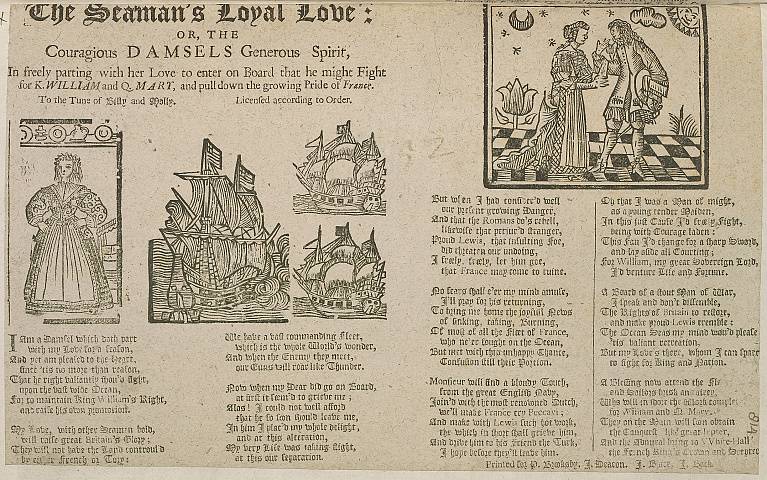 The Seaman's Loyal Love:
OR, THE
Couragious DAMSELS Generous Spirit,
In freely parting with her Love to enter on Board that he might Fight
for K. WILLIAM and Q. MARY, and pull down the growing Pride of France.
To the Tune of Billy and Molly. Licensed according to Order.
I Am a Damsel which doth part
with my Love for a season,
And yet am pleased to the Heart,
since 'tis no more than reason,
That he right valiantly shou'd fight,
upon the vast wide Ocean,
For to maintain King William's Right,
and raise his own promotion.
My Love, with other Seamen bold,
will raise great Britain's Glory;
They will not have the Land controul'd
by either French or Tory:
We have a vast commanding Fleet,
which is the whole World's wonder,
And when the Enemy they meet,
our Guns will roar like Thunder.
Now when my Dear did go on Board,
at first it seem'd to grieve me;
Alas! I could not well afford
that he so soon should leave me,
In him I plac'd my whole delight,
and at this alteration,
My very Life was taking flight,
at this our separation.
But when I had consider'd well
our present growing Danger,
And that the Romans do's rebell,
likewise that perjur'd Stranger,
Proud Lewis, that insulting Foe,
did threaten our undoing,
I freely, freely, let him go,
that France may come to ruine.
No fears shall e'er my mind amuse,
I'll pray for his returning,
To bring me home the joyful News
of sinking, taking, Burning,
Of most all the Fleet of France,
who ne'er fought on the Ocean,
But met with this unhappy Chance,
Confusion still their Portion.
Monsieur will find a bloody Touch,
from the great English Navy,
Join'd with the most renowned Dutch,
we'll make France cry Peccavi;
And make with Lewis such hot work,
the which in short shall grieve him,
And drive him to his Friend the Turk,
I hope before they'll leave him.
Oh that I was a Man of might,
as a young tender Maiden,
In this just Cause I'd freely Fight,
being with Courage laden:
This Fan I'd change for a sharp Sword,
and lay aside all Courting;
For William, my great Sovereign Lord,
I'd venture Life and Fortune.
A Board of a stout Man of War,
I speak and don't dissemble,
The Rights of Britain to restore,
and make proud Lewis tremble:
The Ocean Seas my mind wou'd please
'tis valiant recreation.
But my Love's there, whom I can spare
to fight for King and Nation.
A Blessing now attend the
and Sailors brisk and airey,
Who will in short the Work
for William and Q. Mary.
They on the Main will soon obtain
the Conquest,
And the Admiral bring to White-Hall
the French King's Crown and Scepter
Printed for P. Brooksby, J. Deacon, J. Blare, J. Back.